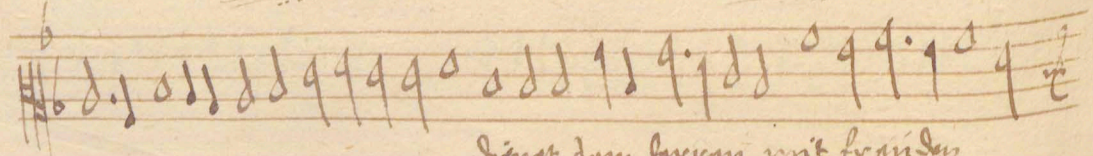 dienet dem herren mit freuden